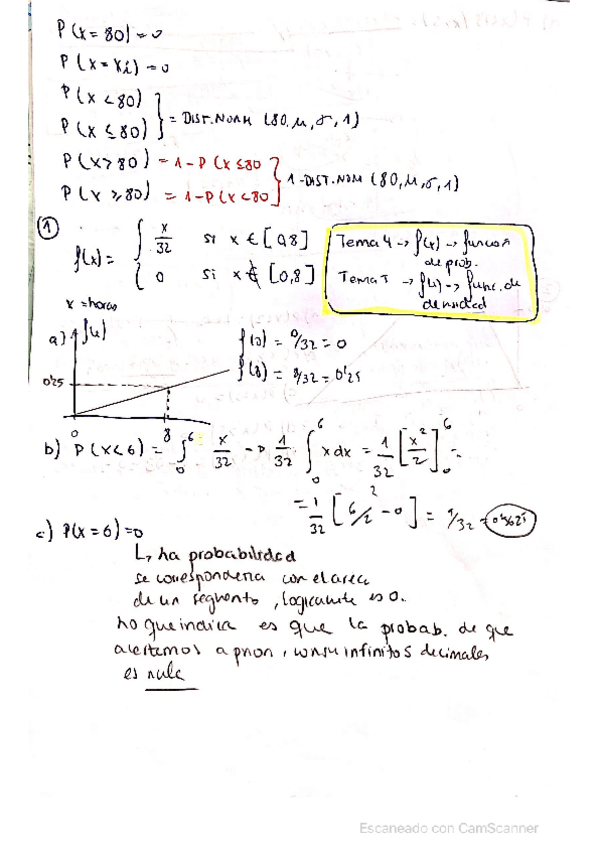 P(x = 80) = 0
P(x = xi) = 0
P(x < 80)
P(x ≤ 80) } = DIST.NORM (80, μ, σ, 1)
P(x > 80) = 1 - P(x ≤ 80
P(x ≥ 80) = 1 - P(x < 80 } 1 - DIST.NORM (80, μ, σ, 1)
① f(x) = { x/32 si x ∈ [0,8]
0 si x ∉ [0,8]
Tema 4 → f(x) → función
de prob.
Tema 5 → f(x) → func. de
densidad
x = horas
a) f(x)
0'25
0 8
f(0) = 0/32 = 0
f(8) = 8/32 = 0'25
b) P(x < 6) = ∫₀⁶ x/32 → 1/32 ∫₀⁶ x dx = 1/32 [x²/2]₀⁶ =
= 1/32 [6²/2 - 0] = 9/32 =
c) P(x = 6) = 0
↳ ha probabilidad
se correspondería con el area
de un segmento, logicamente es 0.
ho que indica es que la probab. de que
acertemos a priori, infinitos decimales,
es nula
Escaneado con CamScanner